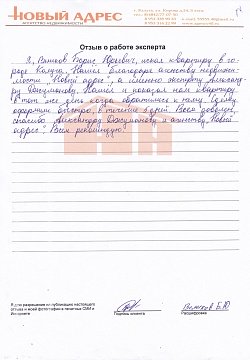 НОВЫЙ АДРЕС
АГЕНТСТВО НЕДВИЖИМОСТИ
Отзыв о работе эксперта
Я, Борис Юрьевич, искал квартиру в го-
роде Калуга. Нашел благодаря агентству недвижи-
мости "Новый адрес", а именно эксперту Алексан-
дру Джусманову. Нашел и показал нам квартиру
в тот же день когда обратились к нему. Сделку
оформили быстро, в течение дней. Всем доволен,
спасибо Александру Джусманову и агентству "Новый
адрес". Всем рекомендую!
Я даю разрешение на публикацию настоящего
отзыва и моей фотографии в печатных СМИ и
Интернете
Подпись клиента
Расшифровка